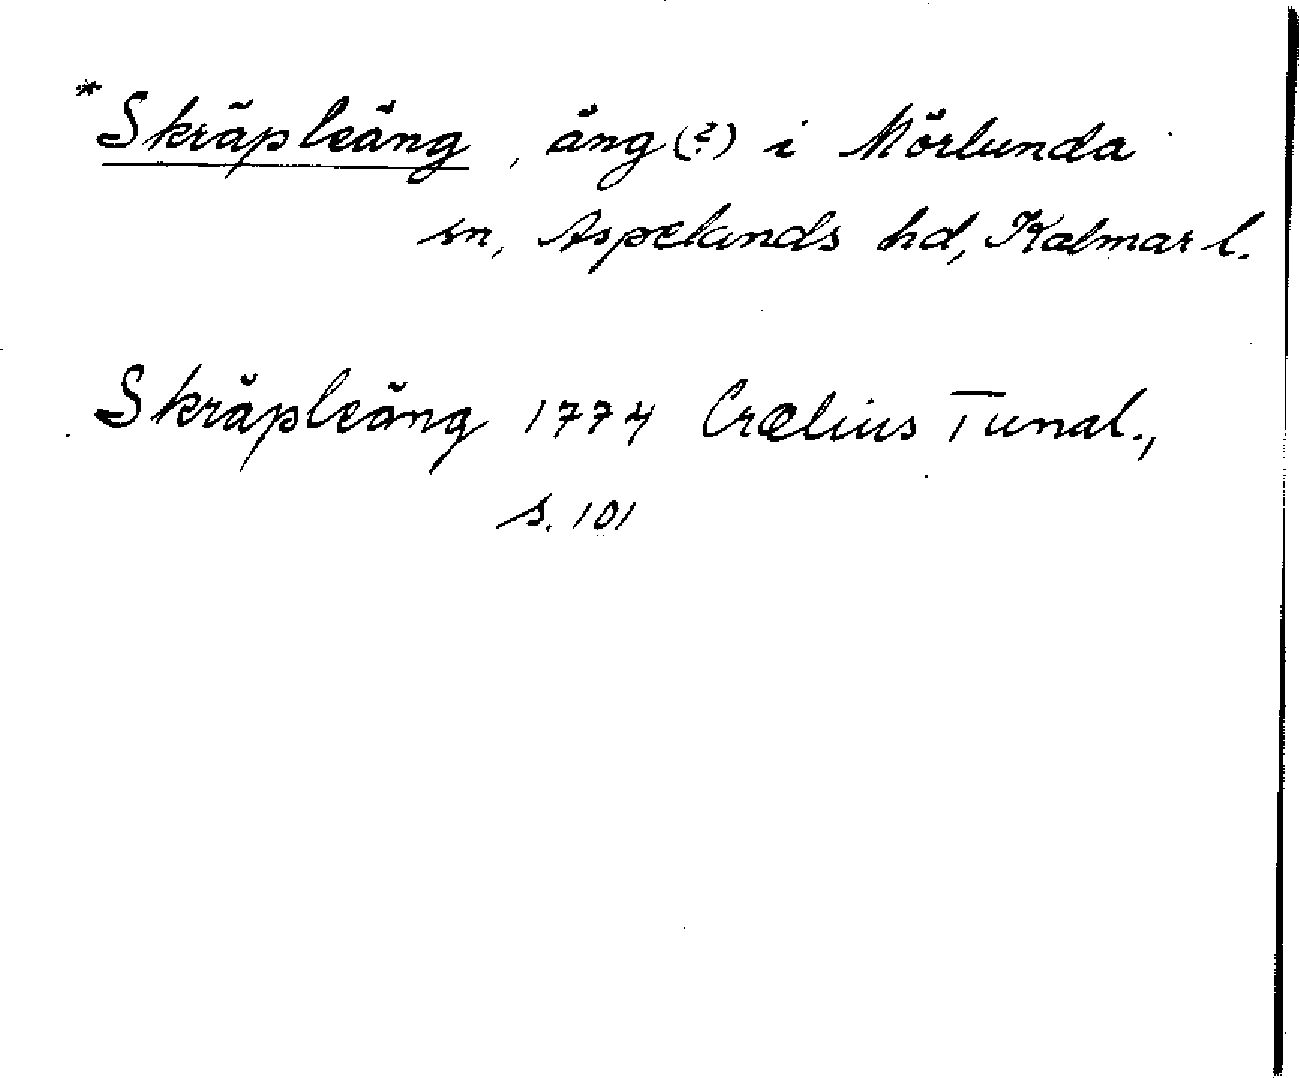 *Skräpleäng, äng(?) i Mörlunda
sn, Aspelands hd, Kalmar l.
Skräpleäng 1774 Crælius Tunal.,
s. 101